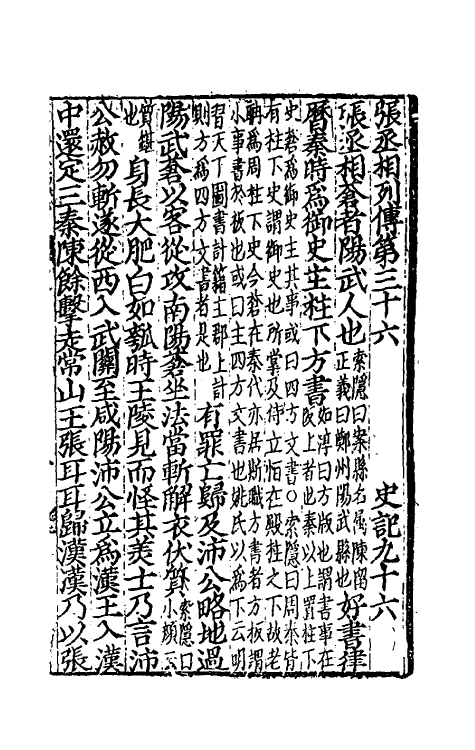 張丞相列傳第三十六 史記九十六
張丞相蒼者陽武人也索隱曰案縣名屬陳留正義曰鄭州陽武縣也好書律
曆秦時爲御史主柱下方書如淳曰方版也謂書事在版上者也秦以上置柱下
史蒼爲御史主其事或曰四方文書○索隱曰周秦皆
有柱下史謂御史也所掌及侍立恒在殿柱之下故老
聃爲周柱下史今蒼在秦代亦居斯職方書者方板謂
小事書於板也或曰主四方文書也姚氏以爲下云明
習天下圖書計籍主郡上計則方爲四方文書者是也有罪亡歸及沛公略地過
陽武蒼以客從攻南陽蒼坐法當斬解衣伏質索隱曰小顏云
質鍖也身長大肥白如瓠時王陵見而怪其美士乃言沛
公赦勿斬遂從西入武關至咸陽沛公立爲漢王入漢
中還定三秦陳餘擊走常山王張耳耳歸漢漢乃以張